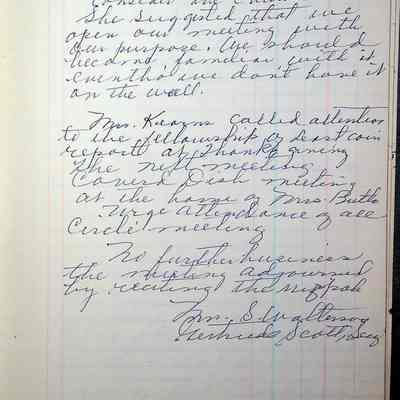 She suggested that we
open our meeting with
our purpose. We should
become familiar with it
eventho we dont have it
on the wall.
Mrs. Kearns called attention
to the fellowship of least coin
report at Thanksgiving
the next meeting
Coverd Dish meeting
at the home of Mrs.
Urge attendance of all
Circle meeting
No further business
the meeting adjourned
by reciting the mizpah
Mrs. S Walterson
Scott, Secy